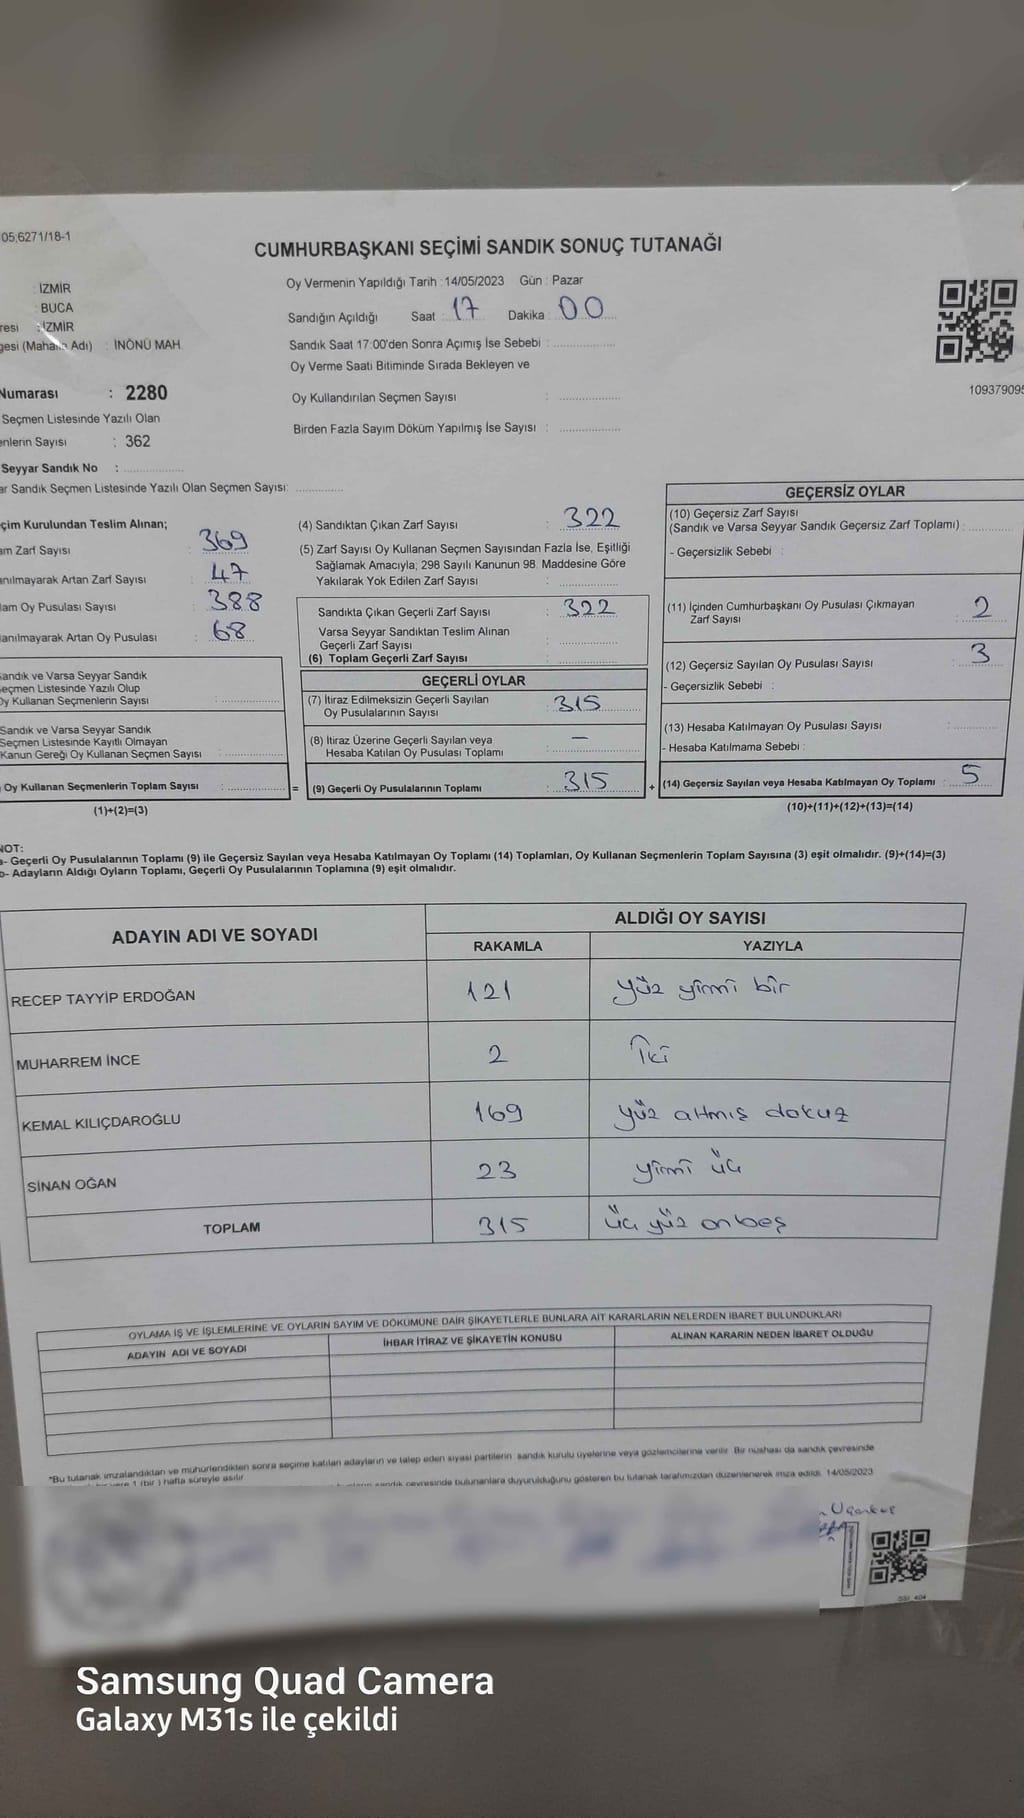 05;6271/18-1
CUMHURBAŞKANI SEÇİMİ SANDIK SONUÇ TUTANAĞI
: İZMİR
: BUCA
resi : İZMİR
gesi (Mahalle Adı) : İNÖNÜ MAH.
Numarası : 2280
Seçmen Listesinde Yazılı Olan
enlerin Sayısı : 362
Seyyar Sandık No :
ar Sandık Seçmen Listesinde Yazılı Olan Seçmen Sayısı:
Oy Vermenin Yapıldığı Tarih : 14/05/2023 Gün : Pazar
Sandığın Açıldığı Saat : 17 Dakika : 00
Sandık Saat 17:00'den Sonra Açımış İse Sebebi :
Oy Verme Saati Bitiminde Sırada Bekleyen ve
Oy Kullandırılan Seçmen Sayısı :
Birden Fazla Sayım Döküm Yapılmış İse Sayısı :
10937909
çim Kurulundan Teslim Alınan;
am Zarf Sayısı : 369
anılmayarak Artan Zarf Sayısı : 47
lam Oy Pusulası Sayısı : 388
anılmayarak Artan Oy Pusulası : 68
Sandık ve Varsa Seyyar Sandık
Seçmen Listesinde Yazılı Olup
Oy Kullanan Seçmenlerin Sayısı :
Sandık ve Varsa Seyyar Sandık
Seçmen Listesinde Kayıtlı Olmayan
Kanun Gereği Oy Kullanan Seçmen Sayısı :
Oy Kullanan Seçmenlerin Toplam Sayısı : =
(1)+(2)=(3)
(4) Sandıktan Çıkan Zarf Sayısı : 322
(5) Zarf Sayısı Oy Kullanan Seçmen Sayısından Fazla İse, Eşitliği
Sağlamak Amacıyla; 298 Sayılı Kanunun 98. Maddesine Göre
Yakılarak Yok Edilen Zarf Sayısı :
Sandıkta Çıkan Geçerli Zarf Sayısı : 322
Varsa Seyyar Sandıktan Teslim Alınan
Geçerli Zarf Sayısı :
(6) Toplam Geçerli Zarf Sayısı :
GEÇERLİ OYLAR
(7) İtiraz Edilmeksizin Geçerli Sayılan
Oy Pusulalarının Sayısı : 315
(8) İtiraz Üzerine Geçerli Sayılan veya
Hesaba Katılan Oy Pusulası Toplamı : –
(9) Geçerli Oy Pusulalarının Toplamı : 315 +
GEÇERSİZ OYLAR
(10) Geçersiz Zarf Sayısı
(Sandık ve Varsa Seyyar Sandık Geçersiz Zarf Toplamı) :
- Geçersizlik Sebebi :
(11) İçinden Cumhurbaşkanı Oy Pusulası Çıkmayan
Zarf Sayısı : 2
(12) Geçersiz Sayılan Oy Pusulası Sayısı : 3
- Geçersizlik Sebebi :
(13) Hesaba Katılmayan Oy Pusulası Sayısı :
- Hesaba Katılmama Sebebi :
(14) Geçersiz Sayılan veya Hesaba Katılmayan Oy Toplamı : 5
(10)+(11)+(12)+(13)=(14)
NOT:
a- Geçerli Oy Pusulalarının Toplamı (9) ile Geçersiz Sayılan veya Hesaba Katılmayan Oy Toplamı (14) Toplamları, Oy Kullanan Seçmenlerin Toplam Sayısına (3) eşit olmalıdır. (9)+(14)=(3)
b- Adayların Aldığı Oyların Toplamı, Geçerli Oy Pusulalarının Toplamına (9) eşit olmalıdır.
ADAYIN ADI VE SOYADI
ALDIĞI OY SAYISI
RAKAMLA YAZIYLA
RECEP TAYYİP ERDOĞAN 121 yüz yirmi bir
MUHARREM İNCE 2 İki
KEMAL KILIÇDAROĞLU 169 yüz altmış dokuz
SİNAN OĞAN 23 yirmi üç
TOPLAM 315 üç yüz onbeş
OYLAMA İŞ VE İŞLEMLERİNE VE OYLARIN SAYIM VE DÖKÜMÜNE DAİR ŞİKAYETLERLE BUNLARA AİT KARARLARIN NELERDEN İBARET BULUNDUKLARI
ADAYIN ADI VE SOYADI İHBAR İTİRAZ VE ŞİKAYETİN KONUSU ALINAN KARARIN NEDEN İBARET OLDUĞU
*Bu tutanak imzalandıktan ve mühürlendikten sonra seçime katılan adayların ve talep eden siyasi partilerin sandık kurulu üyelerine veya gözlemcilerine verilir. Bir nüshası da sandık çevresinde
1 (bir) hafta süreyle asılır.
sandık çevresinde bulunanlara duyurulduğunu gösteren bu tutanak tarafımızdan düzenlenerek imza edildi. 14/05/2023
Samsung Quad Camera
Galaxy M31s ile çekildi